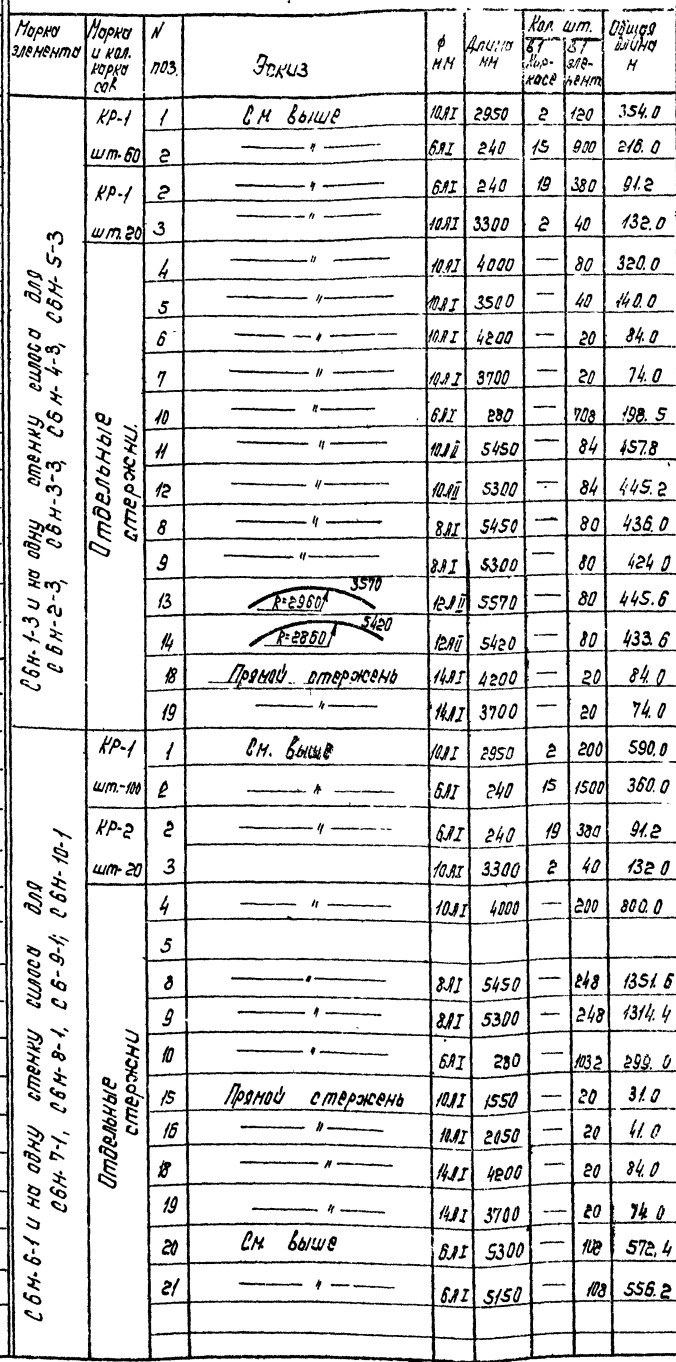 Марка элемента | Марка и кол. каркасов | N поз. | Эскиз | ф мм | Длина мм | Кол. шт. в 1 каркасе | в 1 элементе | Общая длина м
СбН-1-3 и на одну стенку силоса для СбН-2-3, СбН-3-3, СбН-4-3, СбН-5-3
КР-1 | 1 | См выше | 10АI | 2950 | 2 | 120 | 354.0
шт-60 | 2 | —"— | 6АI | 240 | 15 | 900 | 216.0
КР-1 | 2 | —"— | 6АI | 240 | 19 | 380 | 91.2
шт.20 | 3 | —"— | 10АI | 3300 | 2 | 40 | 132.0
Отдельные стержни.
4 | —"— | 10АI | 4000 | — | 80 | 320.0
5 | —"— | 10АI | 3500 | — | 40 | 140.0
6 | —"— | 10АI | 4200 | — | 20 | 84.0
7 | —"— | 10АI | 3700 | — | 20 | 74.0
10 | —"— | 6АI | 280 | — | 708 | 198.5
11 | —"— | 10АII | 5450 | — | 84 | 457.8
12 | —"— | 10АII | 5300 | — | 84 | 445.2
8 | —"— | 8АI | 5450 | — | 80 | 436.0
9 | —"— | 8АI | 5300 | — | 80 | 424 0
13 | R=2960 3570 | 12АII | 5570 | — | 80 | 445.6
14 | R=2860 5420 | 12АII | 5420 | — | 80 | 433.6
18 | Прямой стержень | 14АI | 4200 | — | 20 | 84.0
19 | —"— | 14АI | 3700 | — | 20 | 74.0
СбН-6-1 и на одну стенку силоса для СбН-7-1, СбН-8-1, Сб-9-1; СбН-10-1
КР-1 | 1 | См. выше | 10АI | 2950 | 2 | 200 | 590.0
шт.-100 | 2 | —"— | 6АI | 240 | 15 | 1500 | 360.0
КР-2 | 2 | —"— | 6АI | 240 | 19 | 380 | 91.2
шт-20 | 3 | 10АI | 3300 | 2 | 40 | 132 0
Отдельные стержни
4 | —"— | 10АI | 4000 | — | 200 | 800.0
5
8 | —"— | 8АI | 5450 | — | 248 | 1351.6
9 | —"— | 8АI | 5300 | — | 248 | 1314.4
10 | —"— | 6АI | 280 | — | 1032 | 299.0
15 | Прямой стержень | 10АI | 1550 | — | 20 | 31.0
16 | —"— | 10АI | 2050 | — | 20 | 41.0
18 | —"— | 14АI | 4200 | — | 20 | 84.0
19 | —"— | 14АI | 3700 | — | 20 | 74 0
20 | См. выше | 6АI | 5300 | — | 108 | 572,4
21 | —"— | 6АI | 5150 | 108 | 556.2